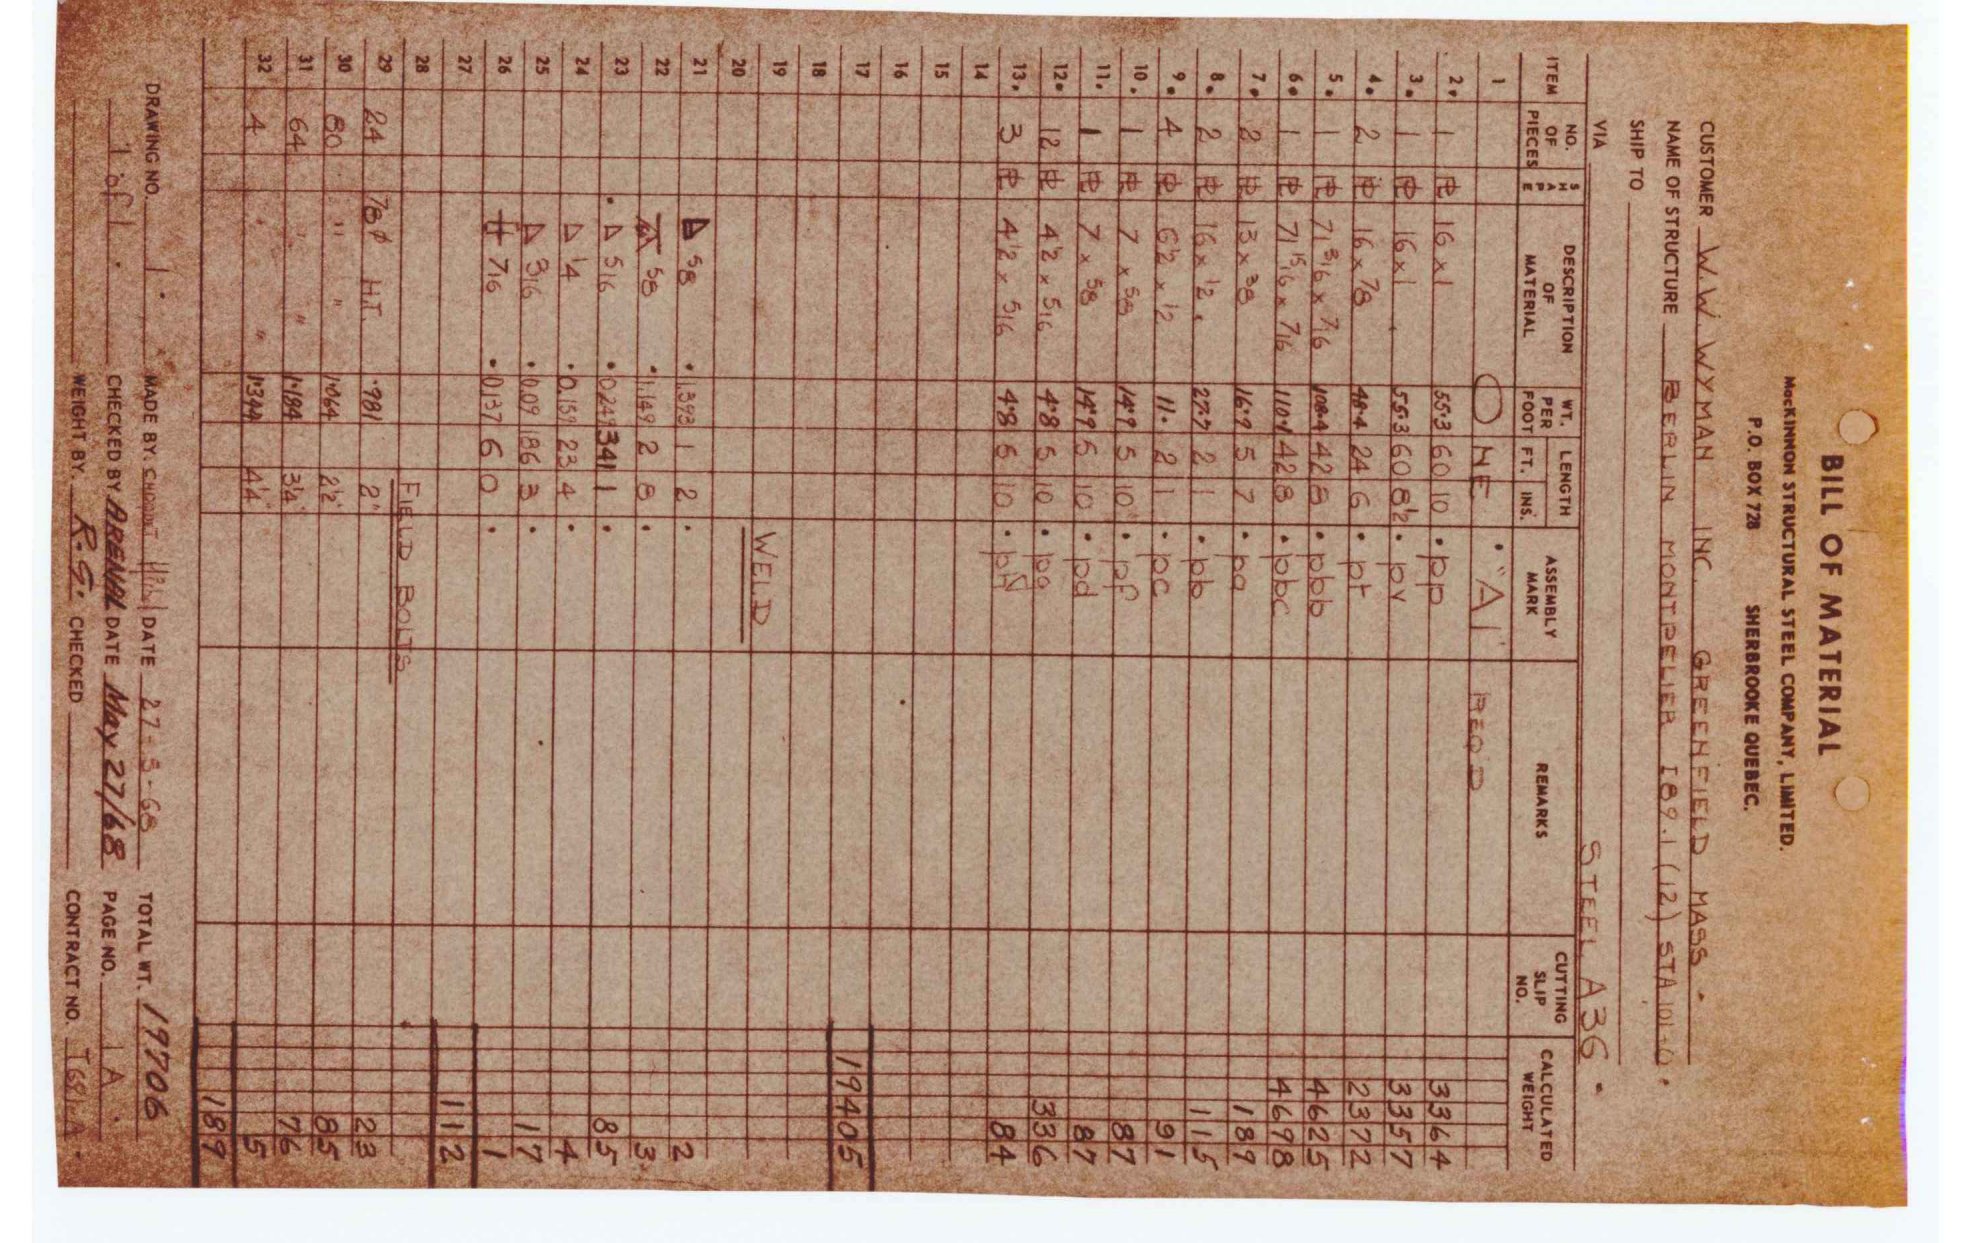 BILL OF MATERIAL
MacKINNON STRUCTURAL STEEL COMPANY, LIMITED.
P.O. BOX 728 SHERBROOKE QUEBEC.
CUSTOMER W.W. WYMAN INC. GREENFIELD MASS.
NAME OF STRUCTURE BERLIN MONTPELIER I89.1 (12) STA 101+0.
SHIP TO
VIA STEEL A36.
ITEM NO. OF PIECES SHAPE DESCRIPTION OF MATERIAL WT. PER FOOT LENGTH FT. INS. ASSEMBLY MARK REMARKS CUTTING SLIP NO. CALCULATED WEIGHT
1 ONE "A1" REQ'D
2. 1 PL 16 x 1 55.3 60 10 pp 3364
3. 1 PL 16 x 1 55.3 60 8½ pv 3357
4. 2 PL 16 x 7/8 48.4 24 6 pt 2372
5. 1 PL 71 3/16 x 7/16 108.4 42 8 pbb 4625
6. 1 PL 71 15/16 x 7/16 110.1 42 8 pbc 4698
7. 2 PL 13 x 3/8 16.9 5 7 pa 189
8. 2 PL 16 x 1/2 27.7 2 1 pb 115
9. 4 PL 6½ x 1/2 11. 2 1 pc 91
10. 1 PL 7 x 5/8 14.9 5 10 pf 87
11. 1 PL 7 x 5/8 14.9 5 10 pd 87
12. 12 PL 4½ x 5/16 4.8 5 10 pg 336
13. 3 PL 4½ x 5/16 4.8 5 10 84
14
15
16
17 19405
18
19 WELD
20
21 5/8 1.393 1 2 2
22 5/8 1.149 2 8 3
23 5/16 0.249 341 1 85
24 1/4 0.159 23 4 4
25 3/16 0.09 186 3 17
26 7/16 0.137 6 0 1
27 112
28 FIELD BOLTS
29 24 7/8 ϕ H.T. .981 2" 23
30 80 " " 1.064 2½" 85
31 64 " " 1.184 3¼" 76
32 4 " " 1.344 4¼" 5
189
DRAWING NO. 1. MADE BY. DATE 27-5-68 TOTAL WT. 19706
1 of 1. CHECKED BY ARENAL DATE May 27/68 PAGE NO. 1A.
WEIGHT BY. R.G. CHECKED CONTRACT NO.